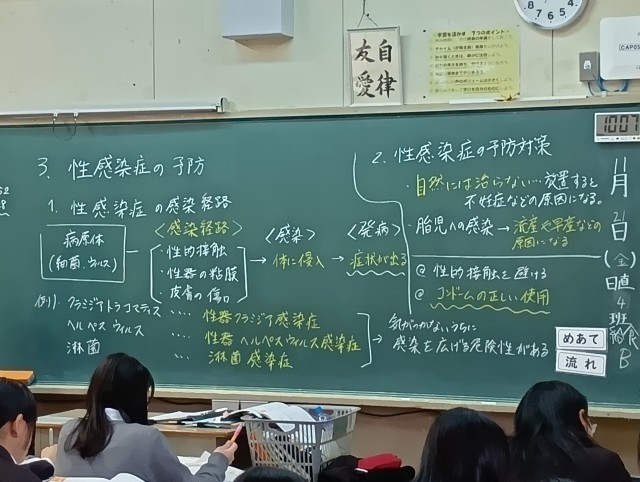 自律
友愛
1007
3. 性感染症の予防
1. 性感染症の感染経路
病原体
(細菌、ウィルス)
<感染経路>
・性的接触
・性器の粘膜
・皮膚の傷口
→
<感染>
体に侵入
→
<発病>
症状が出る
例)・クラミジアトラコマティス
ヘルペスウィルス
淋菌
‥‥性器クラミジア感染症
‥‥性器ヘルペスウィルス感染症
‥‥淋菌感染症
→気がつかないうちに
感染を広げる危険性がある
2. 性感染症の予防対策
・自然には治らない…放置すると
不妊症などの原因になる。
・胎児への感染→流産や早産などの
原因になる
@ 性的接触を避ける
@ コンドームの正しい使用
11
月
21
日
(金)
日直
4
班
給食
B
めあて
流れ